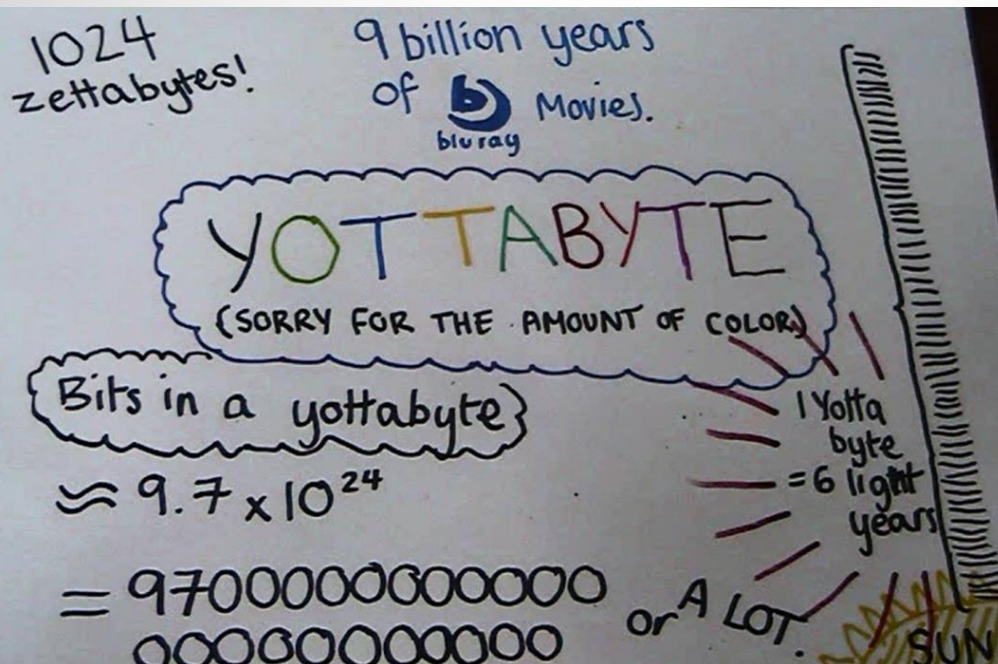 1024
zettabytes!
9 billion years
of b Movies.
bluray
YOTTABYTE
(SORRY FOR THE AMOUNT OF COLOR)
Bits in a yottabyte
≈ 9.7 x 10²⁴
= 97000000000000
00000000000
1 Yotta
byte
= 6 light
years
or A LOT.
SUN